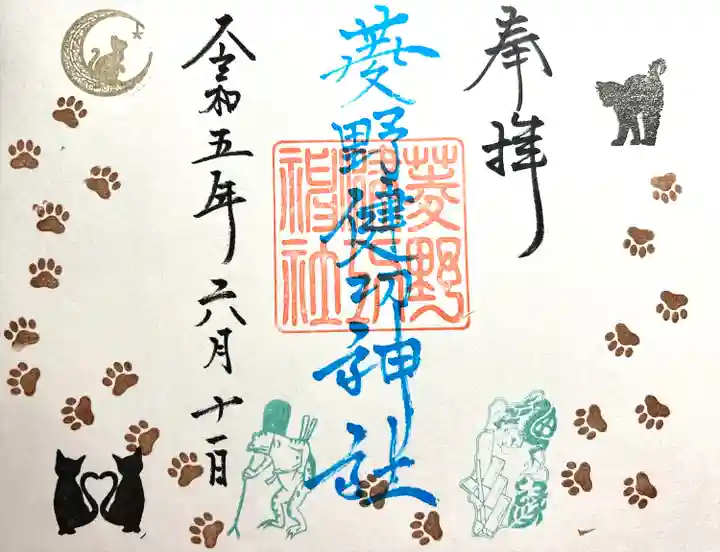 奉拝
菱野健功神社
菱野健功神社
令和五年六月十一日
縁